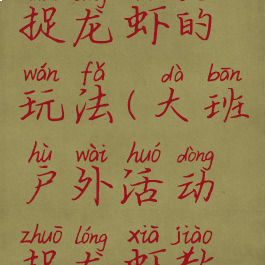 捉龙虾的
wán fǎ dà bān
玩法(大班
hù wài huó dòng
户外活动
zhuō lóng xiā jiào
捉龙虾教